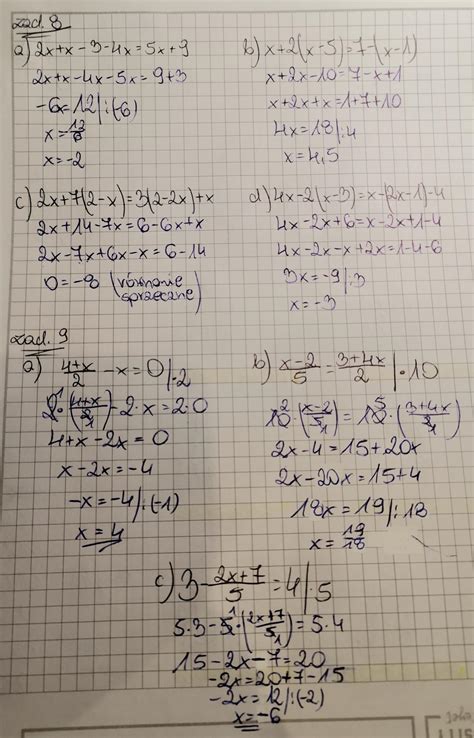 zad. 8
a) 2x+x-3-4x=5x+9
2x+x-4x-5x=9+3
-6x=12/:(-6)
x=12/6
x=-2
b) x+2(x-5)=7-(x-1)
x+2x-10=7-x+1
x+2x+x=1+7+10
4x=18/:4
x=4,5
c) 2x+7(2-x)=3(2-2x)+x
2x+14-7x=6-6x+x
2x-7x+6x-x=6-14
0=-8 (równanie
sprzeczne)
d) 4x-2(x-3)=x-(2x-1)-4
4x-2x+6=x-2x+1-4
4x-2x-x+2x=1-4-6
3x=-9/:3
x=-3
zad. 9
a) (4+x)/2 -x=0/·2
2·((4+x)/2)-2·x=2·0
4+x-2x=0
x-2x=-4
-x=-4/:(-1)
x=4
b) (x-2)/5=(3+4x)/2 /·10
10·((x-2)/5)=10·((3+4x)/2)
2x-4=15+20x
2x-20x=15+4
18x=19/:18
x=19/18
c) 3-(2x+7)/5=4/·5
5·3-5·((2x+7)/5)=5·4
15-2x-7=20
-2x=20+7-15
-2x=12/:(-2)
x=-6